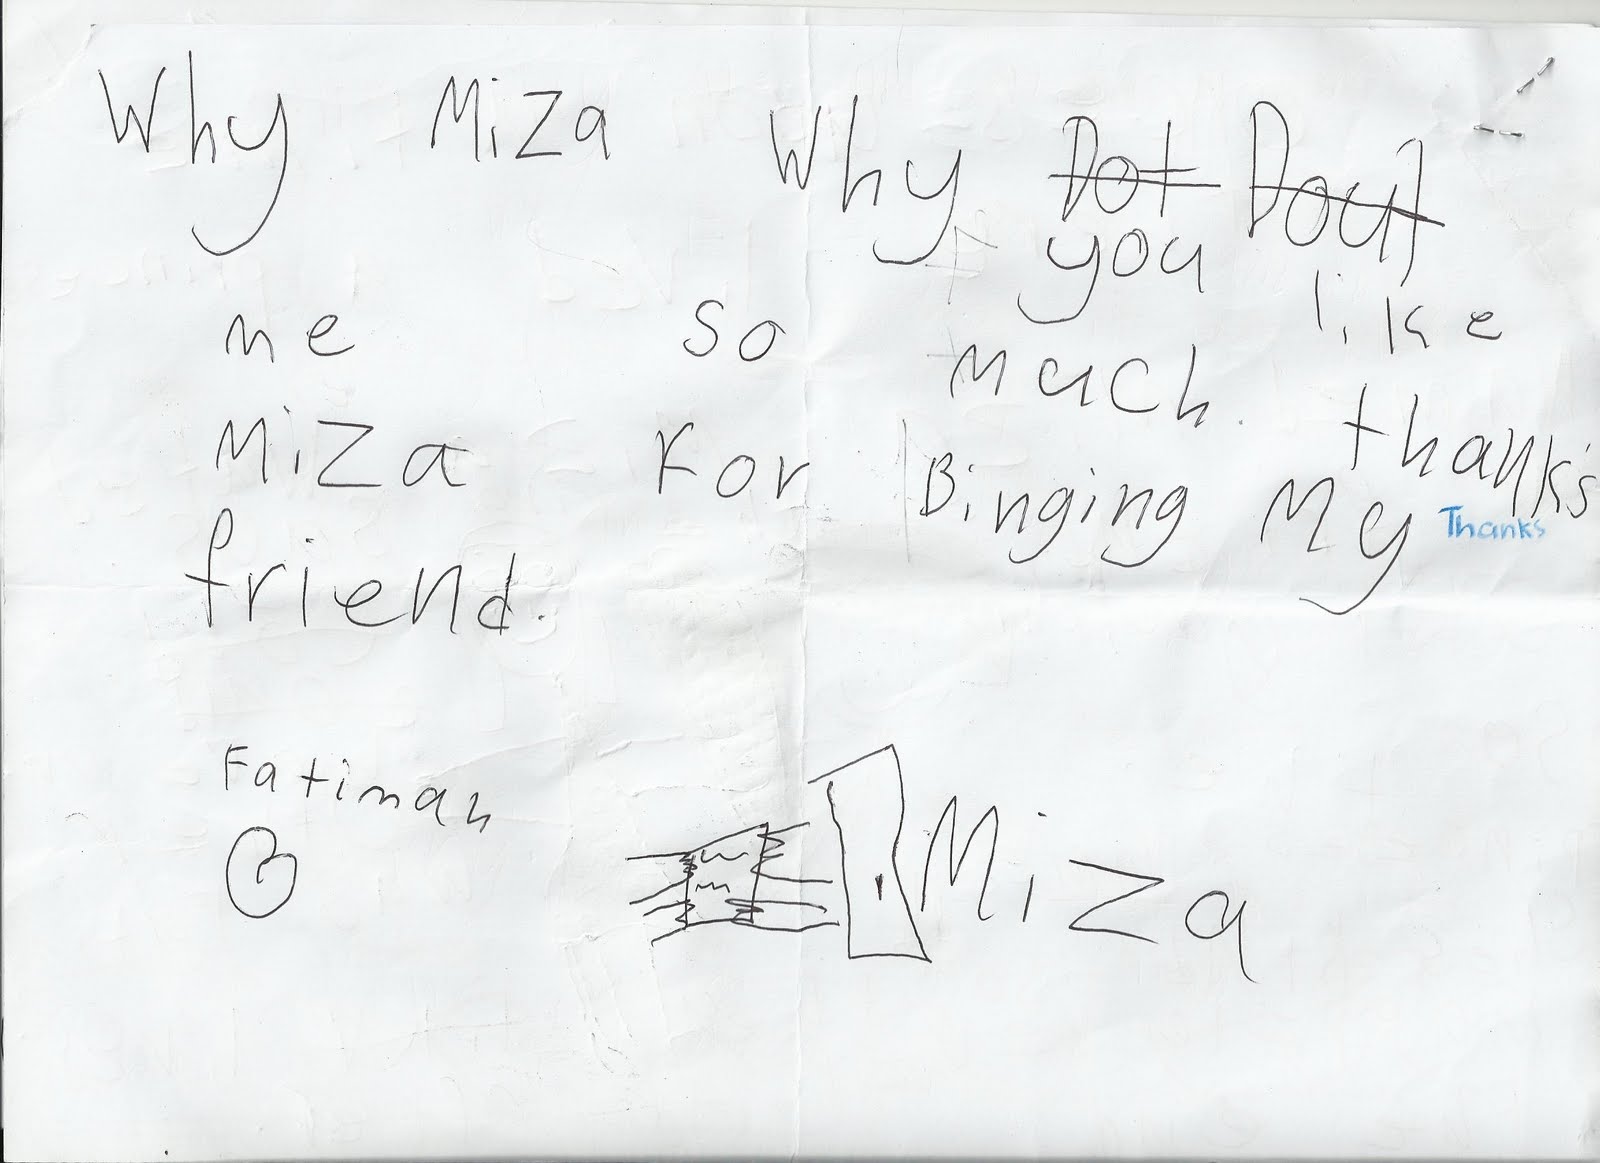 Why Miza Why Dot Dout
you like
me so much. thank's
Miza For Binging My Thanks
friend.
Fatimah
Miza